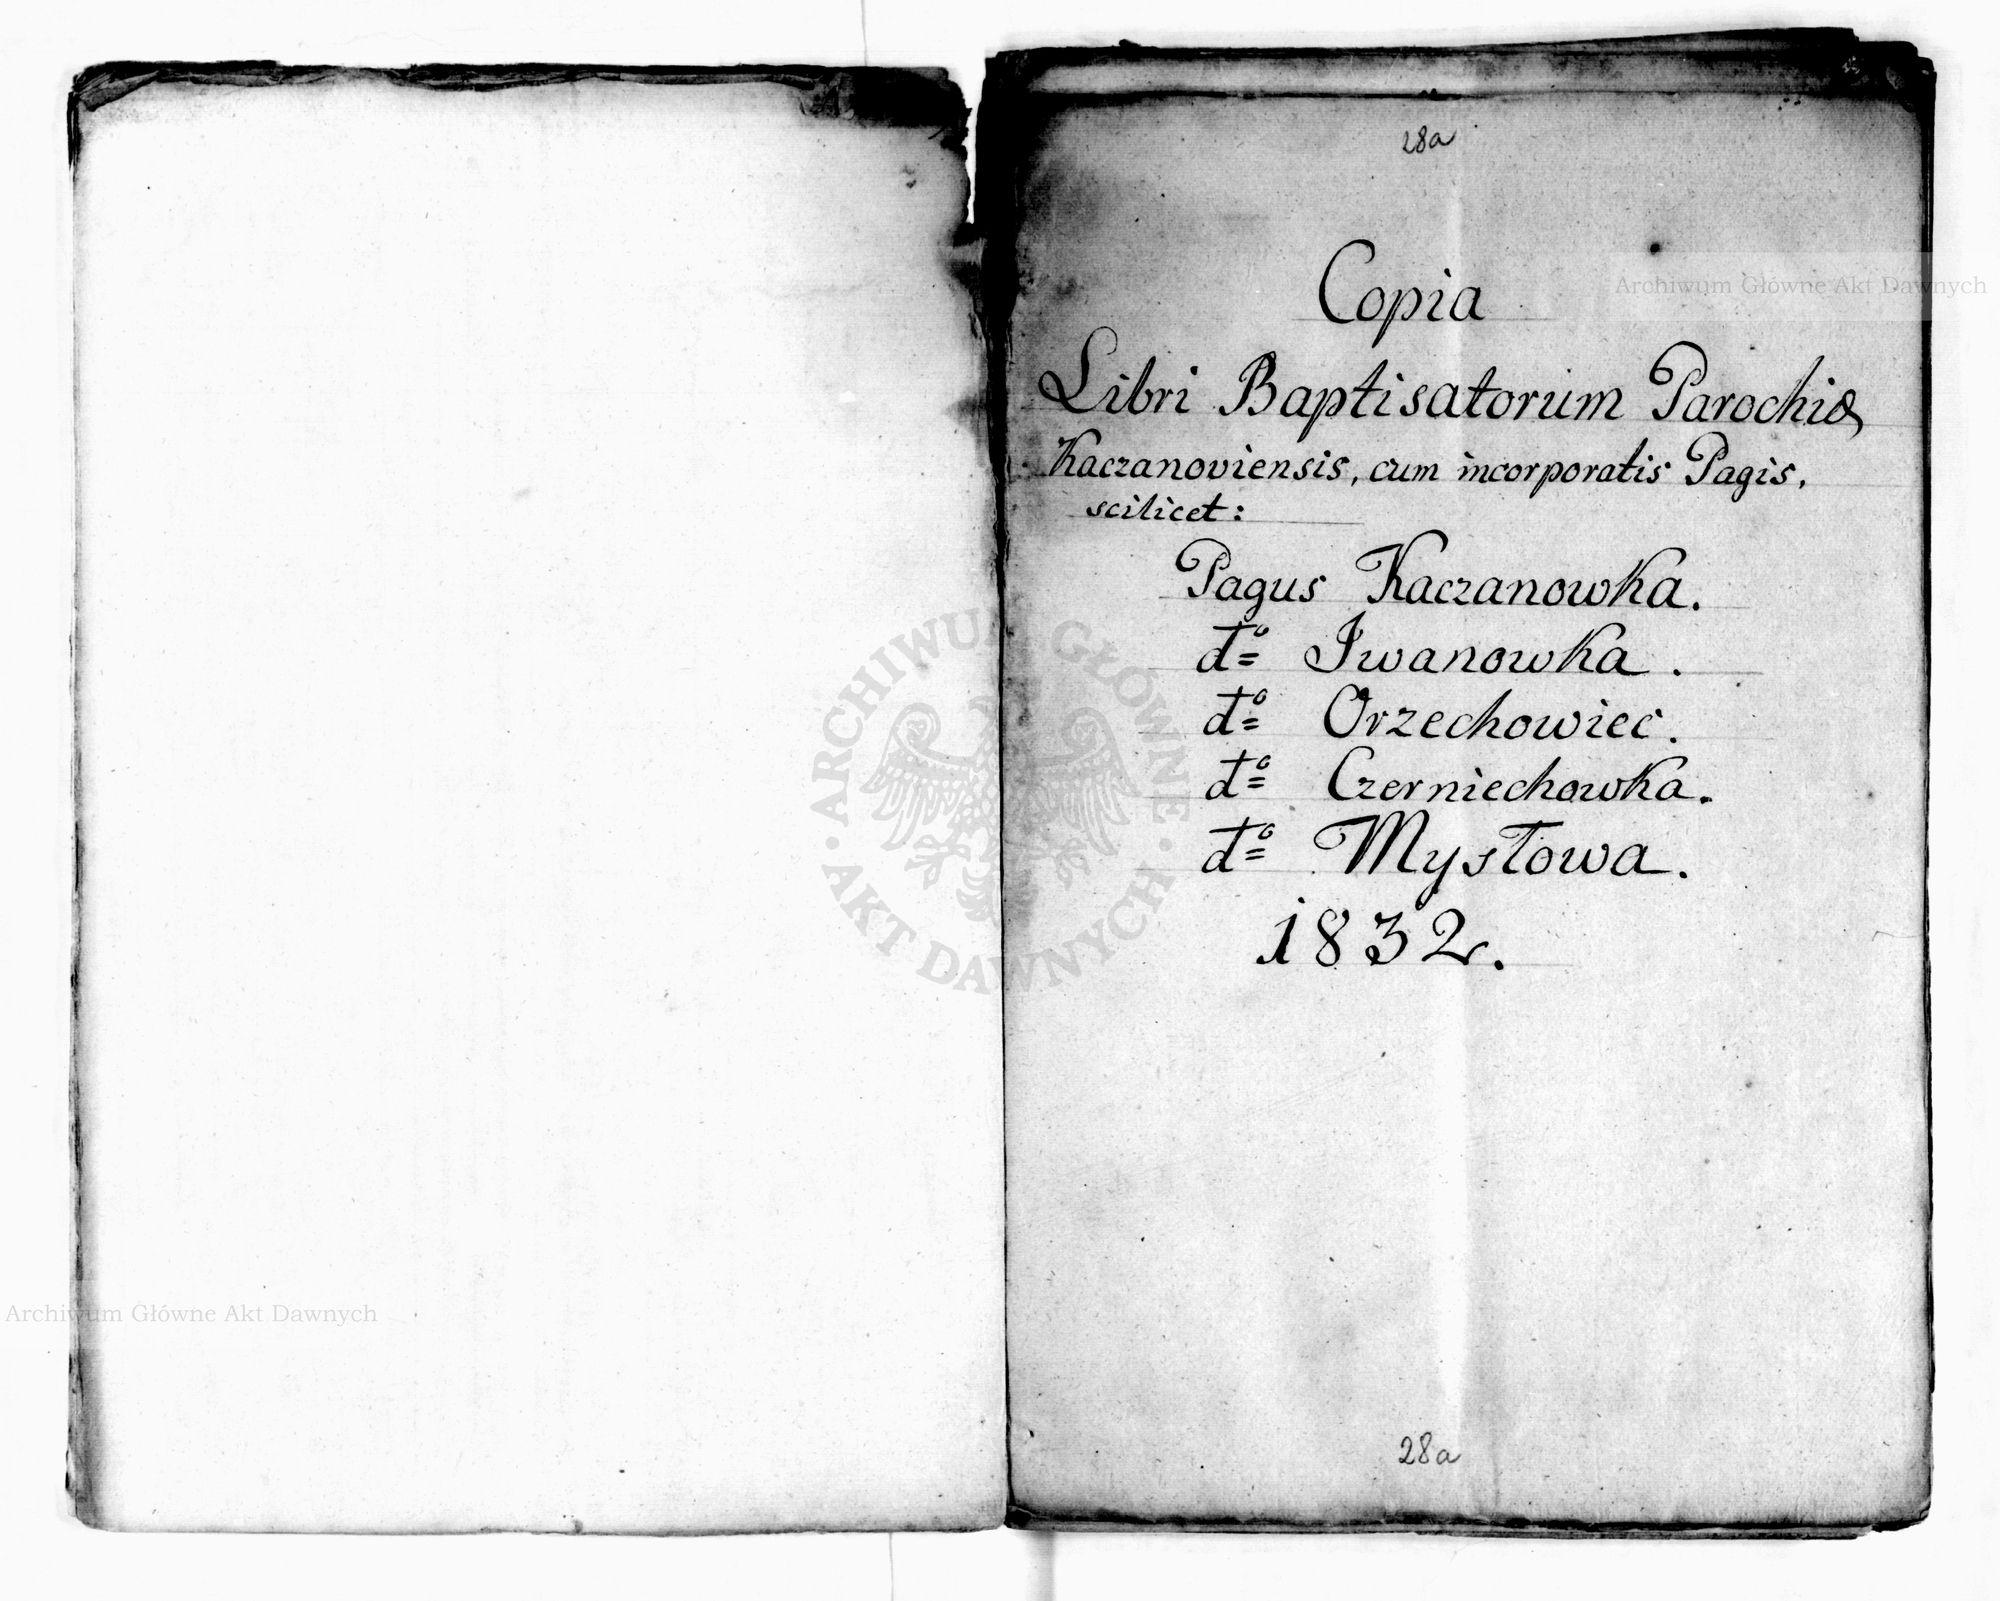 28a
Archiwum Główne Akt Dawnych
Copia
Libri Baptisatorum Parochiæ
Kaczanoviensis, cum incorporatis Pagis,
scilicet:
Pagus Kaczanowka.
dto Iwanowka.
dto Orzechowiec.
dto Czerniechowka.
dto Mysłowa.
1832.
ARCHIWUM GŁÓWNE AKT DAWNYCH
Archiwum Główne Akt Dawnych
28a